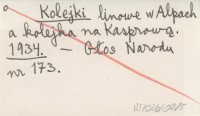 Kolejki linowe w Alpach
a kolejka na Kasprową.
1934. — Głos Narodu
nr 173.